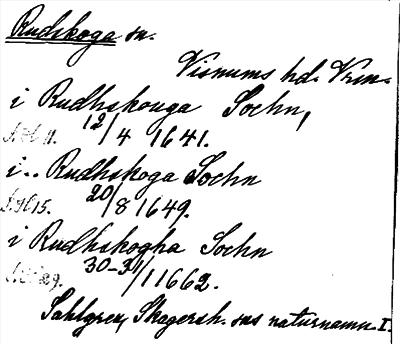 Rudskoga sn.
Visnums hd. Vrm.
i Rudhskouga Sochn,
12/4 1641.
i.. Rudhskoga Sochn
20/8 1649.
i Rudhskogha Sochn
30-31/1 1662.
Sahlgren, Skagersh. sns naturnamn I.